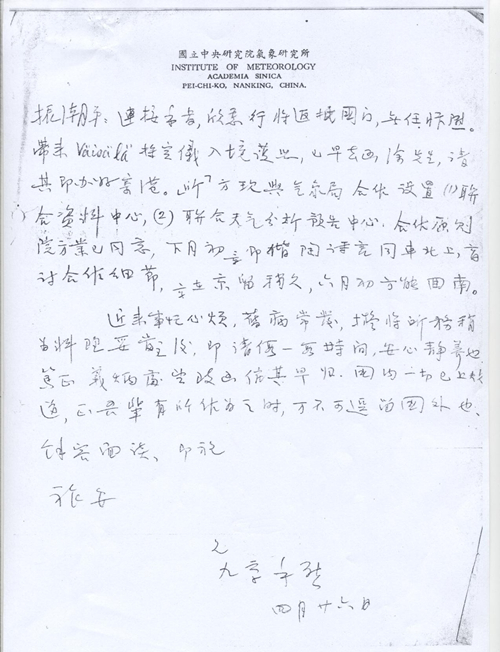 國立中央研究院氣象研究所
INSTITUTE OF METEOROLOGY
ACADEMIA SINICA
PEI-CHI-KO, NANKING, CHINA.
振潮兄：連接手書，欣悉行將返抵國門，無任快慰。
帶來 Väisälä 探空儀入境護照，已早去函涂先生，請
其即办好寄港。所方現與气象局合作設置 (1) 联
合資料中心，(2) 联合天气分析預告中心。合作原則
院方業已同意，下月初即偕陶詩言同車北上，商
討合作細節，在京留稍久，六月初方能回南。
近来事忙心煩，舊病常發，擬將所務稍
料理妥當之後，即請假一兩時間，安心靜養也。
篤正義炳處望致函促其早归。國內一切已上軌
道，正吾輩有所作為之時，万不可逗留國外也。
餘容面談、即祝
旅安
九章
四月廿六日